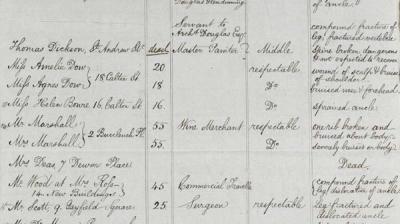 Douglas
Servant to compound fracture of
Archd Douglas Esqr leg fractured vertebrae
Thomas Dickson, St Andrew St dead Master Painter Middle Spine broken, dangerous
not expected to recover
Miss Amelia Dow 20 respectable wound of scalp & bruise
18 Calder St of shoulder
Miss Agnes Dow 18 Do bruised nose & forehead
Miss Helen Bowre 16 Calder St 16. Do sprained ancle
Mr Marshall 55 Wine Merchant respectable one rib broken and
2 Buccleuch Pl bruised about body
Mrs Marshall 55. Do severely bruised or body
Mrs Deas 7 Place Dead
Mr Wood at Mrs Ross 45 Commercial compound fracture of
14 New Buildings leg dislocation of ancle
Mr Scott, 9 Gayfield Square 25 Surgeon respectable leg fractured and
dislocated ancle